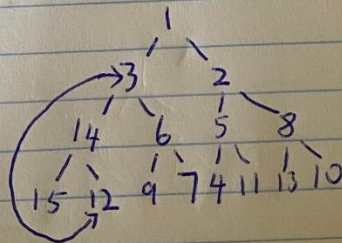 1
3 2
14 6 5 8
15 12 9 7 4 11 13 10